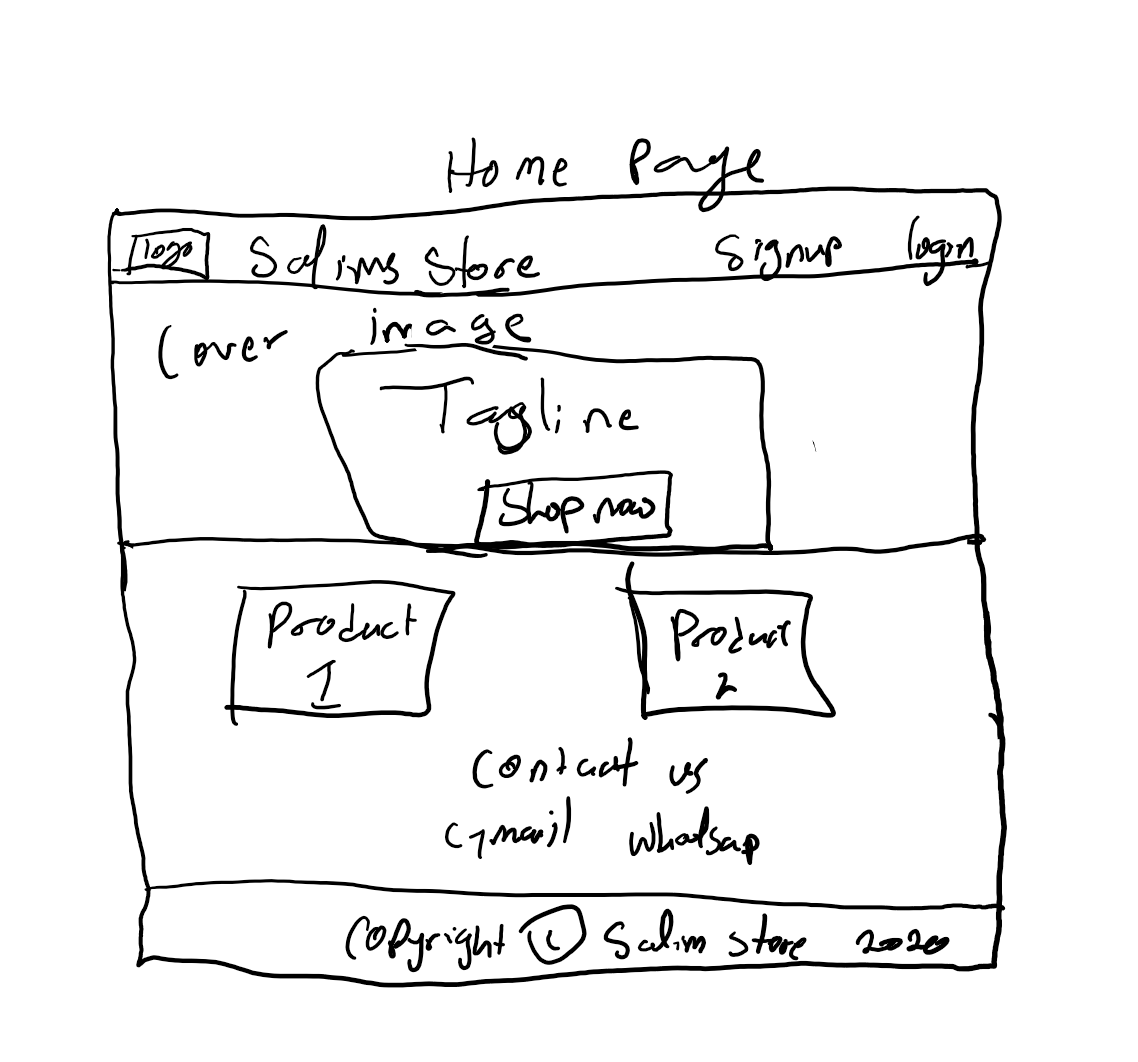 Home Page
logo Salims Store Signup login
Cover image
Tagline
Shop now
Product 1
Product 2
Contact us
Gmail Whatsap
Copyright © Salim Store 2020